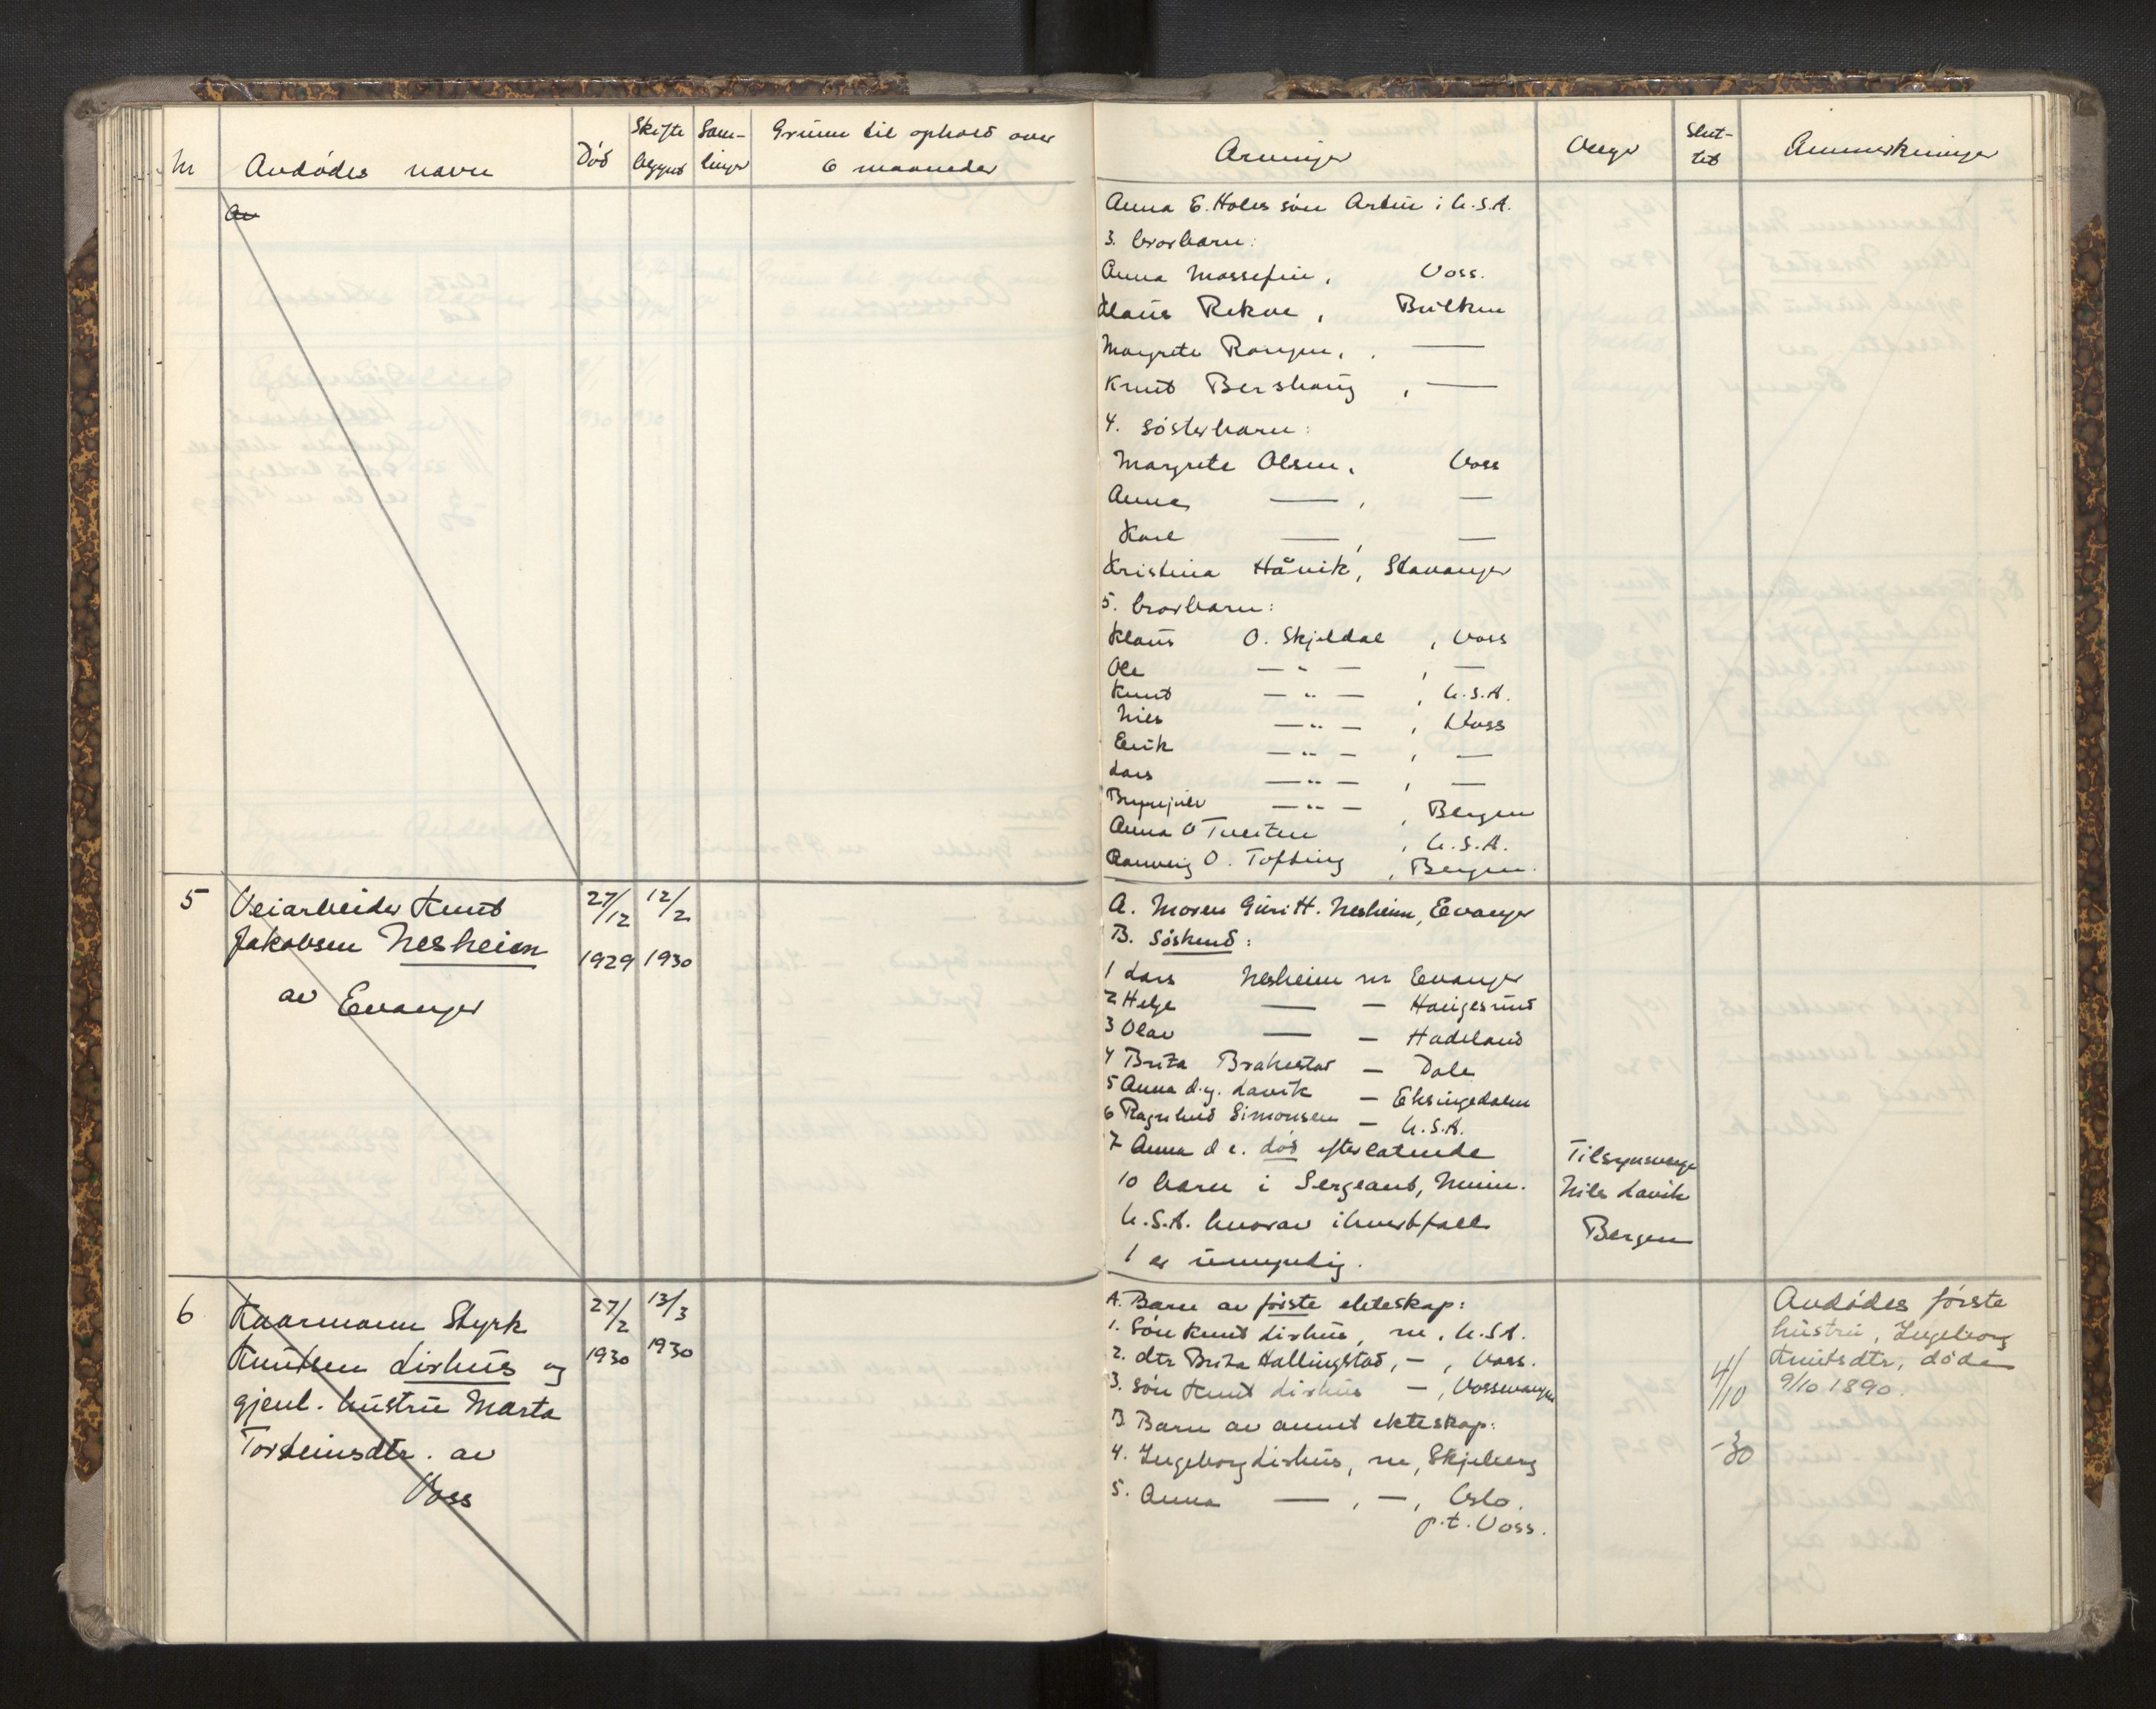 Nr
Avdødes navn
Død
Skifte
begynt
Sam-
linger
Grunn til ophold over
6 maaneder
Arvinger
Verge
Slut-
tet
Anmerkninger
Av
Anna E. Holes søn Artur i U.S.A.
3. brorbarn:
Anna Mossefin, Voss.
Klaus Rekve, Bulken
Margrete Rongen, —
Knut Bershaug, —
4. søsterbarn:
Margrete Olsen, Voss
Anna — , —
Karl — , —
Kristina Håvik, Stavanger
5. brorbarn:
Klaus O. Skjeldal, Voss
Ole — " — , —
Knut — " — , U.S.A.
Nils — " — , Voss
Erik — " — , —
Lars — " — , —
Brynjulv — " — , Bergen
Anna O Tveiten, U.S.A.
Ranveig O. Tofting, Bergen.
5
Veiarbeider Knut
Jakobsen Nesheim
av Evanger
27/12
1929
12/2
1930
A. Moren Guri H. Nesheim, Evanger
B. Søskend:
1 Lars Nesheim m Evanger
2 Helge — — Haugesund
3 Olav — — Hadeland
4 Brita Brakestad — Dale
5 Anna d.y. Lavik — Eksingedalen
6 Ragnhild Simonsen — U.S.A.
7 Anna d e. død efterlatende
10 barn i Sergeant, Minn.
U.S.A. hvorav ihvertfall
1 er umyndig.
Tilsynsverge
Nils Lavik
Bergen
6
Kaarmann Styrk
Knutsen Lirhus og
gjenl. hustru Marta
Torsteinsdtr. av
Voss
27/2
1930
13/3
1930
A. Barn av første ekteskap:
1. Søn Knut Lirhus, m, U.S.A.
2. dtr Brita Hallingstad, — , Voss.
3. søn Knut Lirhus — , Vossevangen
B Barn av annet ekteskap:
4. Ingeborg Lirhus, m, Skjeberg
5. Anna — , — , Oslo.
p.t. Voss.
4/10
-30
Avdødes første
hustru, Ingeborg
Knutsdtr, døde
9/10 1890.